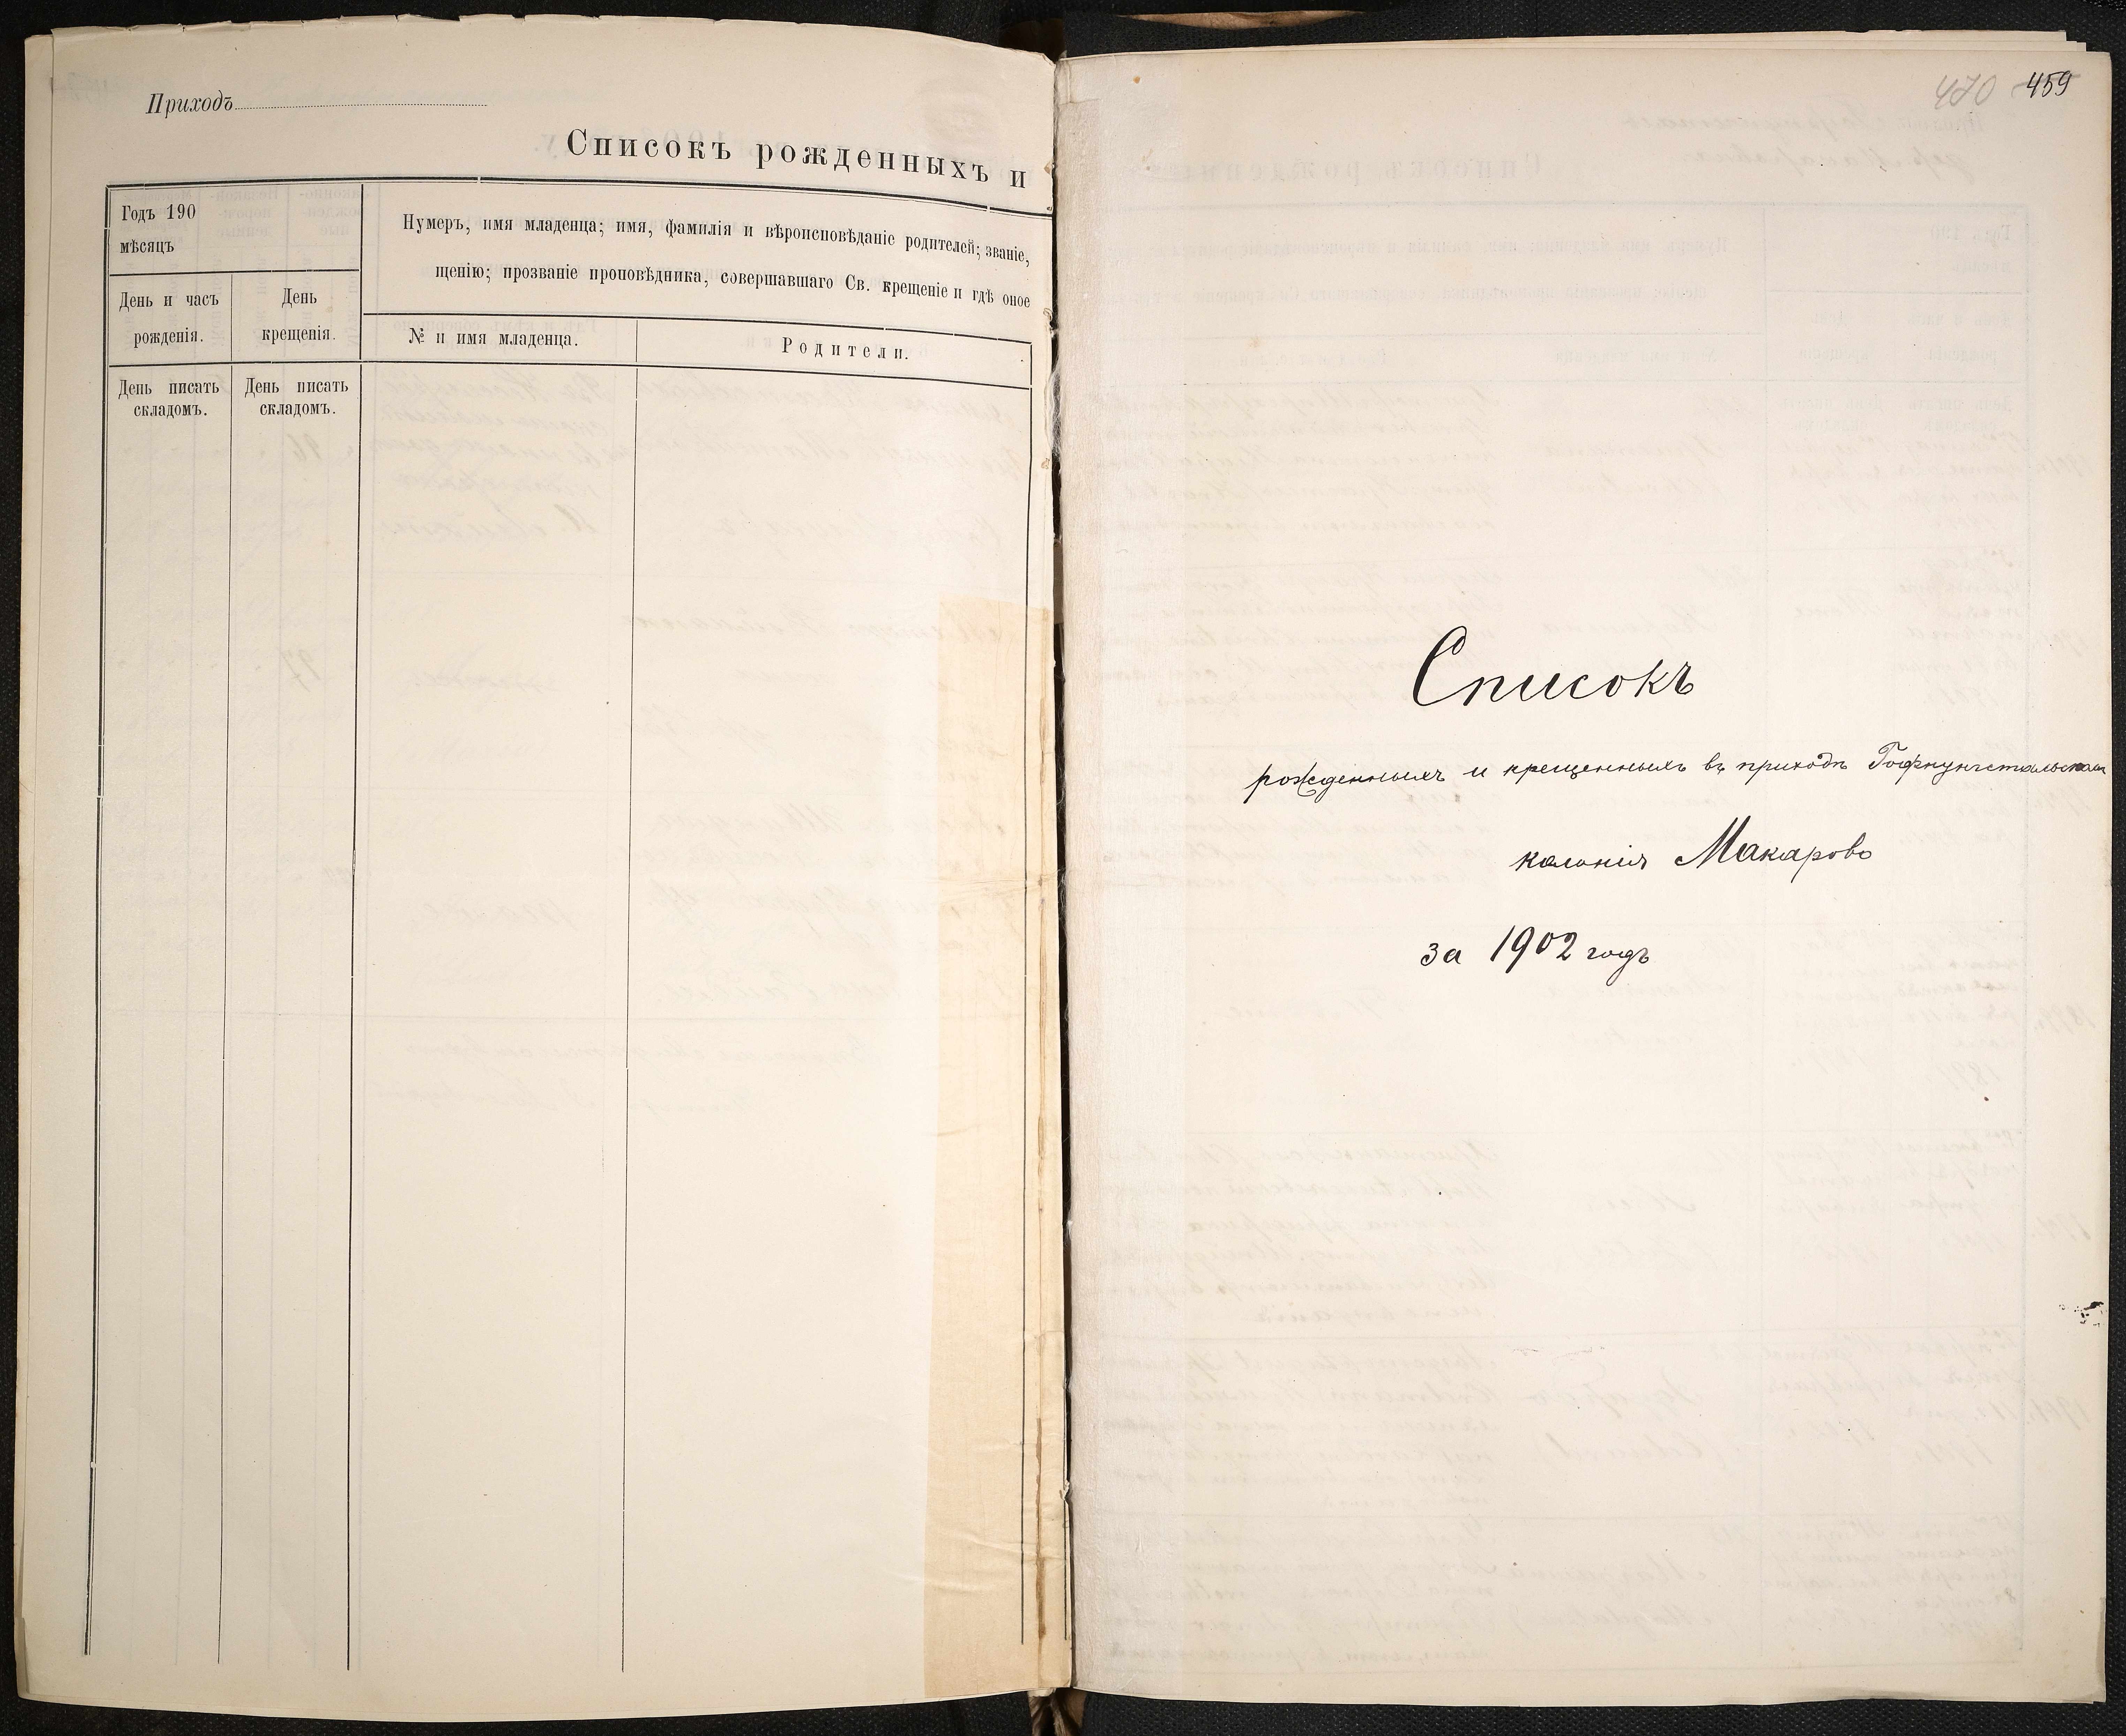 Приходъ
Списокъ рожденныхъ и
Годъ 190
мѣсяцъ
Нумеръ, имя младенца; имя, фамилія и вѣроисповѣданіе родителей; званіе,
щенію; прозваніе проповѣдника, совершавшаго Св. крещеніе и гдѣ оное
День и часъ
рожденія.
День
крещенія.
№ и имя младенца.
Родители.
День писать
складомъ.
День писать
складомъ.
470 459
Списокъ
рожденныхъ и крещенныхъ въ приходѣ Гофнунгстальскомъ
колонія Макарово
за 1902 годъ